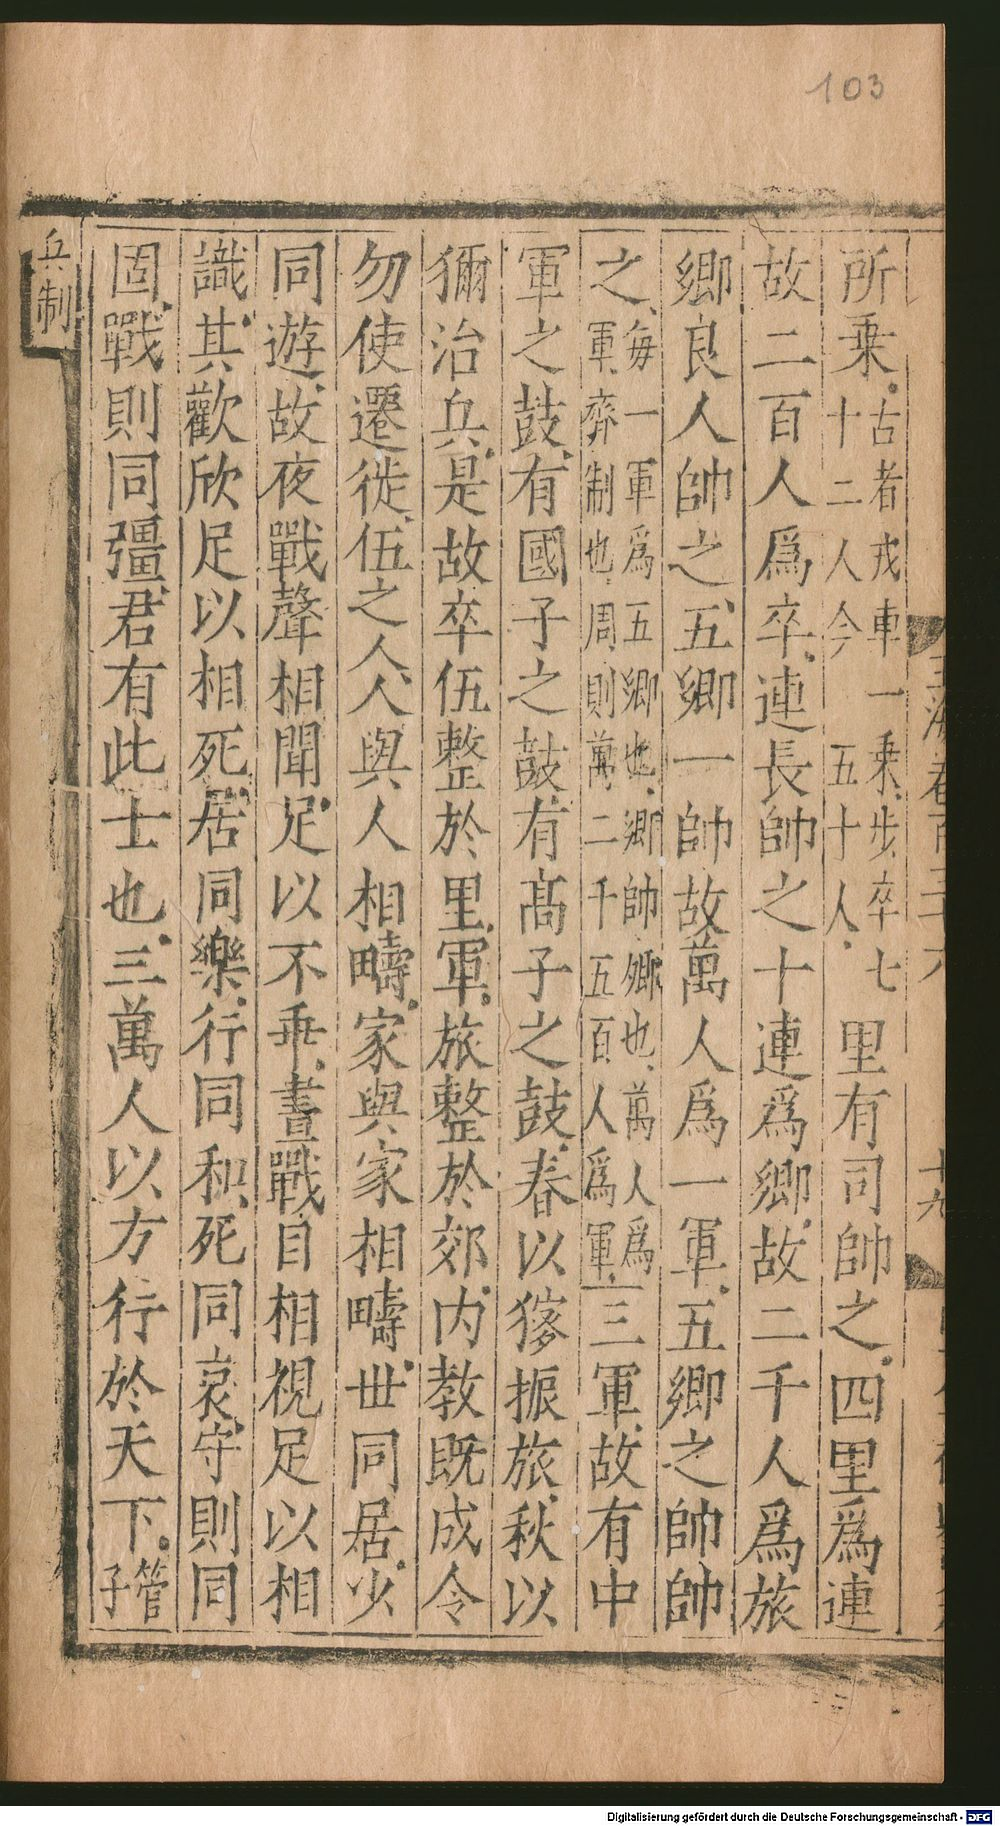 103
所乗古者戎車一乗步卒七十二人今五十人里有司帥之四里爲連
故二百人爲卒連長帥之十連爲卿故二千人爲旅
卿良人帥之五卿一帥故萬人爲一軍五卿之帥帥
之每一軍爲五卿也卿帥卿也萬人爲軍齊制也周則萬二千五百人爲軍三軍故有中
軍之鼓有國子之鼓有髙子之鼓春以獀振旅秋以
獮治兵是故卒伍整於里軍旅整於郊内教既成令
勿使遷徙伍之人人與人相疇家與家相疇世同居少
同遊故夜戰聲相聞足以不乖晝戰目相視足以相
識其歡欣足以相死居同樂行同和死同哀守則同
固戰則同彊君有此士也三萬人以方行於天下管子
兵制
十九
Digitalisierung gefördert durch die Deutsche Forschungsgemeinschaft - DFG